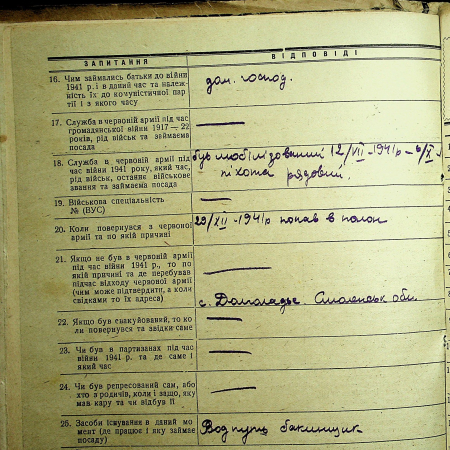 ЗАПИТАННЯ
ВІДПОВІДІ
16. Чим займались батьки до війни
1941 р. і в даний час та належ-
ність їх до комуністичної пар-
тії і з якого часу
дом. господ.
17. Служба в червоній армії під час
громадянської війни 1917—22
років, рід військ та займаєма
посада
18. Служба в червоній армії під
час війни 1941 року, який час,
рід військ, останнє військове
звання та займаєма посада
був мобілізований 12/VII-1941р – 6/X
піхота рядовий.
19. Військова спеціальність
№ (ВУС)
20. Коли повернувся з червоної
армії та по якій причині
29/XII-1941р попав в полон
21. Якщо не був в червоній армії
під час війни 1941 р., то по
якій причині та де перебував
під час відходу червоної армії
(чим може підтвердити, а коли
свідками то їх адреса)
с. Смоленськ обл.
22. Якщо був евакуйований, то ко-
ли повернувся та звідки саме
23. Чи був в партизанах під час
війни 1941 р. та де саме і
який час
24. Чи був репресований сам, або
хто з родичів, коли і за що, яку
мав кару та чи відбув її
25. Засоби існування в даний мо-
мент (де працює і яку займає
посаду)